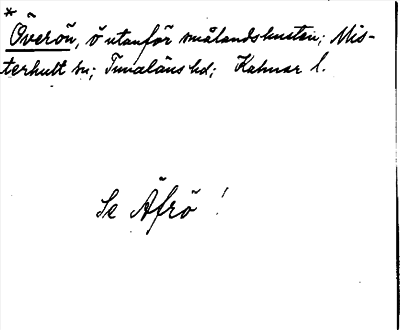 *
Överön, ö utanför smålandskusten; Mis-
terhult sn; Tunaläns hd; Kalmar l.
Se Äfrö!